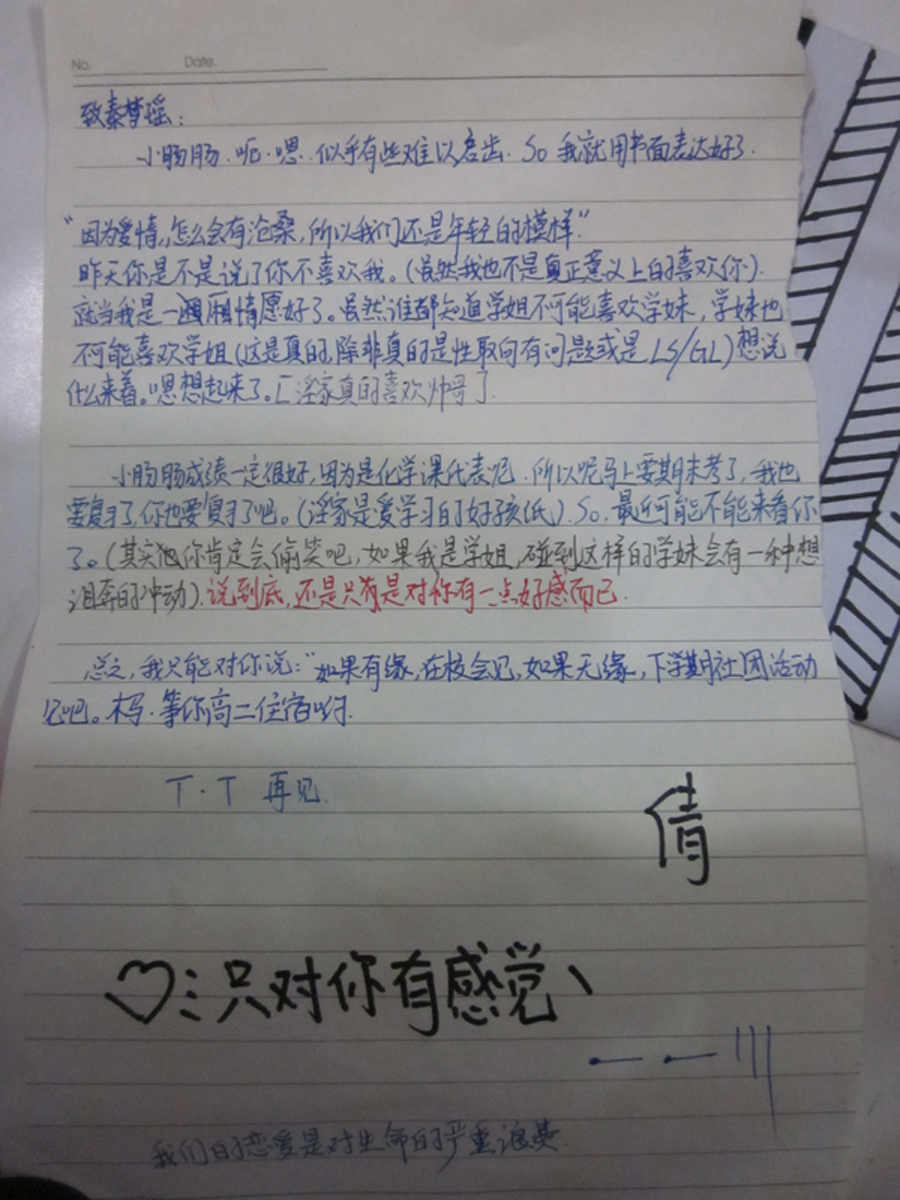 No. Date.
致秦梦瑶：
小肠肠.呃.嗯.似乎有些难以启齿.So 我就用书面表达好了.
“因为爱情,怎么会有沧桑,所以我们还是年轻的模样”
昨天你是不是说了你不喜欢我。(虽然我也不是真正意义上的喜欢你).
就当我是一厢情愿好了。虽然谁都知道学姐不可能喜欢学妹,学妹也
不可能喜欢学姐(这是真的,除非真的是性取向有问题或是LS/GL)想说
什么来着。嗯想起来了。[淫家真的喜欢帅哥了.
小肠肠成绩一定很好,因为是化学课代表呢.所以呢马上要期末考了,我也
要复习了,你也要复习了吧。(淫家是爱学习的好孩纸).So.最近可能不能来看你
了。(其实你肯定会偷笑吧,如果我是学姐,碰到这样的学妹会有一种想
泪奔的冲动).说到底,还是只是对你有一点好感而已.
总之,我只能对你说：“如果有缘,在校会见,如果无缘,下学期社团活动
见吧。木马.等你高二住宿哟.
T.T 再见.
倩
♡:只对你有感觉、
我们的恋爱是对生命的严重浪费.